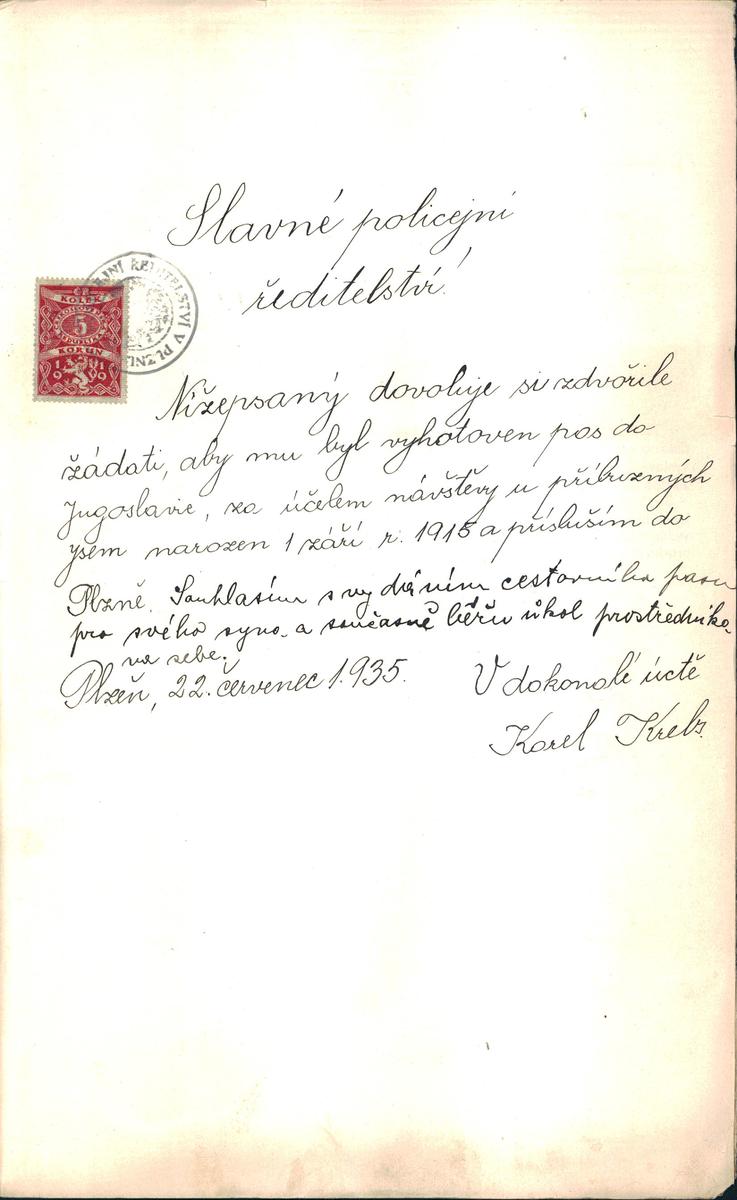 Slavné policejní
ředitelství!
KOLEK
5
KORUN
1919
JNÍ ŘEDITELSTVÍ V PLZNI
Nížepsaný dovoluje si zdvořile
žádati, aby mu byl vyhotoven pas do
Jugoslavie, za účelem návštěvy u příbuzných
jsem narozen 1 září r. 1915 a příslušim do
Plzně. Souhlasím s vydáním cestovního pasu
pro svého syna a současně béřu úkol prostředníka
na sebe.
Plzeň, 22. červenec 1935.
V dokonalé úctě
Karel Krebs.